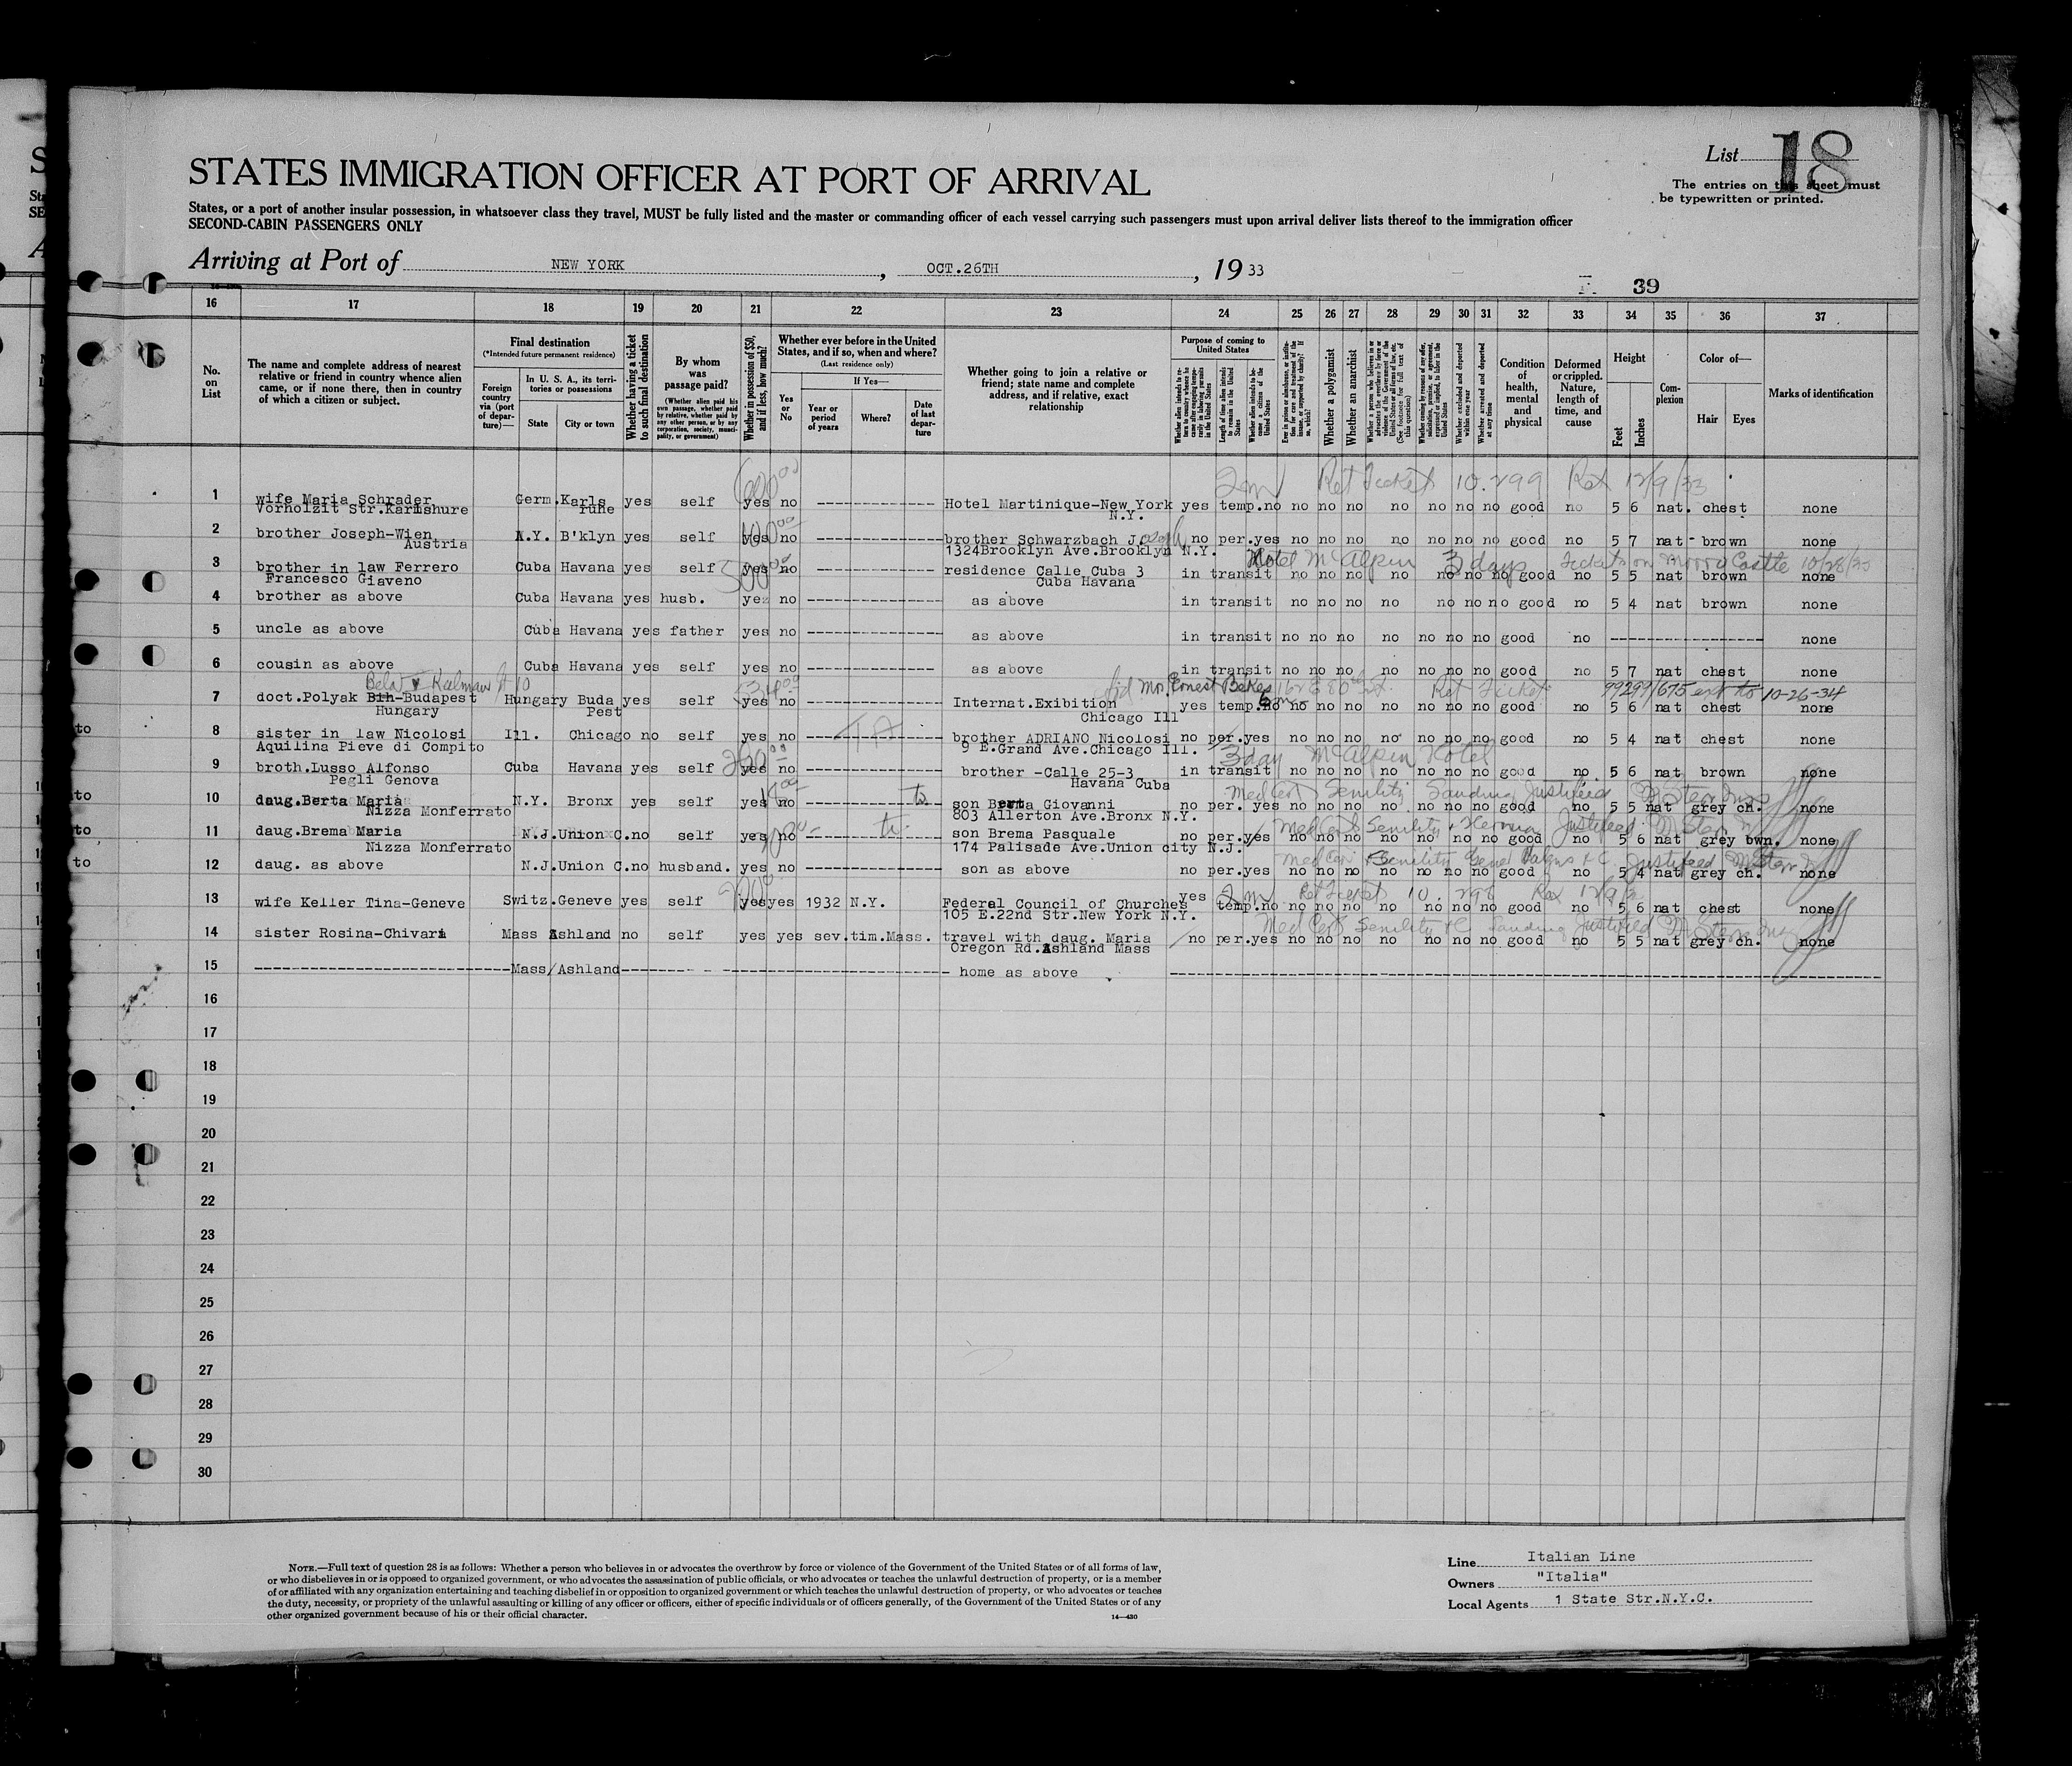 List 18
STATES IMMIGRATION OFFICER AT PORT OF ARRIVAL
The entries on this sheet must
be typewritten or printed.
States, or a port of another insular possession, in whatsoever class they travel, MUST be fully listed and the master or commanding officer of each vessel carrying such passengers must upon arrival deliver lists thereof to the immigration officer
SECOND-CABIN PASSENGERS ONLY
Arriving at Port of NEW YORK, OCT.26TH, 1933
39
16 17 18 19 20 21 22 23 24 25 26 27 28 29 30 31 32 33 34 35 36 37
No. on List
The name and complete address of nearest relative or friend in country whence alien came, or if none there, then in country of which a citizen or subject.
Final destination
(*Intended future permanent residence)
Foreign country via (port of departure)—
In U. S. A., its territories or possessions
State
City or town
Whether having a ticket to such final destination
By whom was passage paid?
(Whether alien paid his own passage, whether paid by relative, whether paid by any other person, or by any corporation, society, municipality, or government)
Whether in possession of $50, and if less, how much?
Whether ever before in the United States, and if so, when and where?
(Last residence only)
Yes or No
If Yes—
Year or period of years
Where?
Date of last departure
Whether going to join a relative or friend; state name and complete address, and if relative, exact relationship
Purpose of coming to United States
Length of time alien intends to remain in the United States
Whether a polygamist
Whether an anarchist
Whether excluded and deported within one year
Whether arrested and deported at any time
Condition of health, mental and physical
Deformed or crippled. Nature, length of time, and cause
Height
Feet
Inches
Complexion
Color of—
Hair
Eyes
Marks of identification
2m Ret Ticket 10.299 Rex 12/9/33
1 wife Maria Schrader Germ. Karls yes self yes no Hotel Martinique-New York yes temp.no no no no no no no no good no 5 6 nat. chest none
Vorholzit Str.Karlshure ruhe N.Y.
2 brother Joseph-Wien N.Y. B'klyn yes self yes no brother Schwarzbach J. no per.yes no no no no no no no good no 5 7 nat brown none
Austria 1324Brooklyn Ave.Brooklyn N.Y.
Hotel McAlpin 3 days Tickets on Morro Castle 10/28/33
3 brother in law Ferrero Cuba Havana yes self yes no residence Calle Cuba 3 in transit no no no no no no no good no 5 5 nat brown none
Francesco Giaveno Cuba Havana
4 brother as above Cuba Havana yes husb. yes no as above in transit no no no no no no no good no 5 4 nat brown none
5 uncle as above Cuba Havana yes father yes no as above in transit no no no no no no no good no none
6 cousin as above Cuba Havana yes self yes no as above in transit no no no no no no no good no 5 7 nat chest none
Mr. Ernest Bekes Ret Ticket 99297/675 ext to 10-26-34
7 doct.Polyak Bih-Budapest Hungary Buda yes self yes no Internat.Exibition yes temp.no no no no no no no no good no 5 6 nat chest none
Hungary Pest Chicago Ill
8 sister in law Nicolosi Ill. Chicago no self yes no brother ADRIANO Nicolosi no per.yes no no no no no no no good no 5 4 nat chest none
Aquilina Pieve di Compito 9 E.Grand Ave.Chicago Ill.
3 day McAlpin Hotel
9 broth.Lusso Alfonso Cuba Havana yes self yes no brother -Calle 25-3 in transit no no no no no no no good no 5 6 nat brown none
Pegli Genova Havana Cuba
Med Cert Senility Landing Justified
10 daug.Berta Maria N.Y. Bronx yes self yes no son Berta Giovanni no per. yes no no no no no no no good no 5 5 nat grey ch. none
Nizza Monferrato 803 Allerton Ave.Bronx N.Y.
Med Cert Senility + Hernia Justified
11 daug.Brema Maria N.J.Union C.no self yes no son Brema Pasquale no per.yes no no no no no no no good no 5 6 nat grey bwn. none
Nizza Monferrato 174 Palisade Ave.Union city N.J.
Med Cert Senility Justified
12 daug. as above N.J.Union C.no husband. yes no son as above no per.yes no no no no no no no good no 5 4 nat grey ch. none
2m Ret Ticket 10.298 Rex
13 wife Keller Tina-Geneve Switz.Geneve yes self yes yes 1932 N.Y. Federal Council of Churches yes temp.no no no no no no no no good no 5 6 nat chest none
105 E.22nd Str.New York N.Y.
Med Cert Senility Landing Justified
14 sister Rosina-Chivari Mass Ashland no self yes yes sev.tim.Mass. travel with daug. Maria no per.yes no no no no no no no good no 5 5 nat grey ch. none
Oregon Rd.Ashland Mass
15 Mass/Ashland home as above
16
17
18
19
20
21
22
23
24
25
26
27
28
29
30
NOTE.—Full text of question 28 is as follows: Whether a person who believes in or advocates the overthrow by force or violence of the Government of the United States or of all forms of law,
or who disbelieves in or is opposed to organized government, or who advocates the assassination of public officials, or who advocates or teaches the unlawful destruction of property, or is a member
of or affiliated with any organization entertaining and teaching disbelief in or opposition to organized government or which teaches the unlawful destruction of property, or who advocates or teaches
the duty, necessity, or propriety of the unlawful assaulting or killing of any officer or officers, either of specific individuals or of officers generally, of the Government of the United States or of any
other organized government because of his or their official character.
14—430
Line Italian Line
Owners "Italia"
Local Agents 1 State Str.N.Y.C.